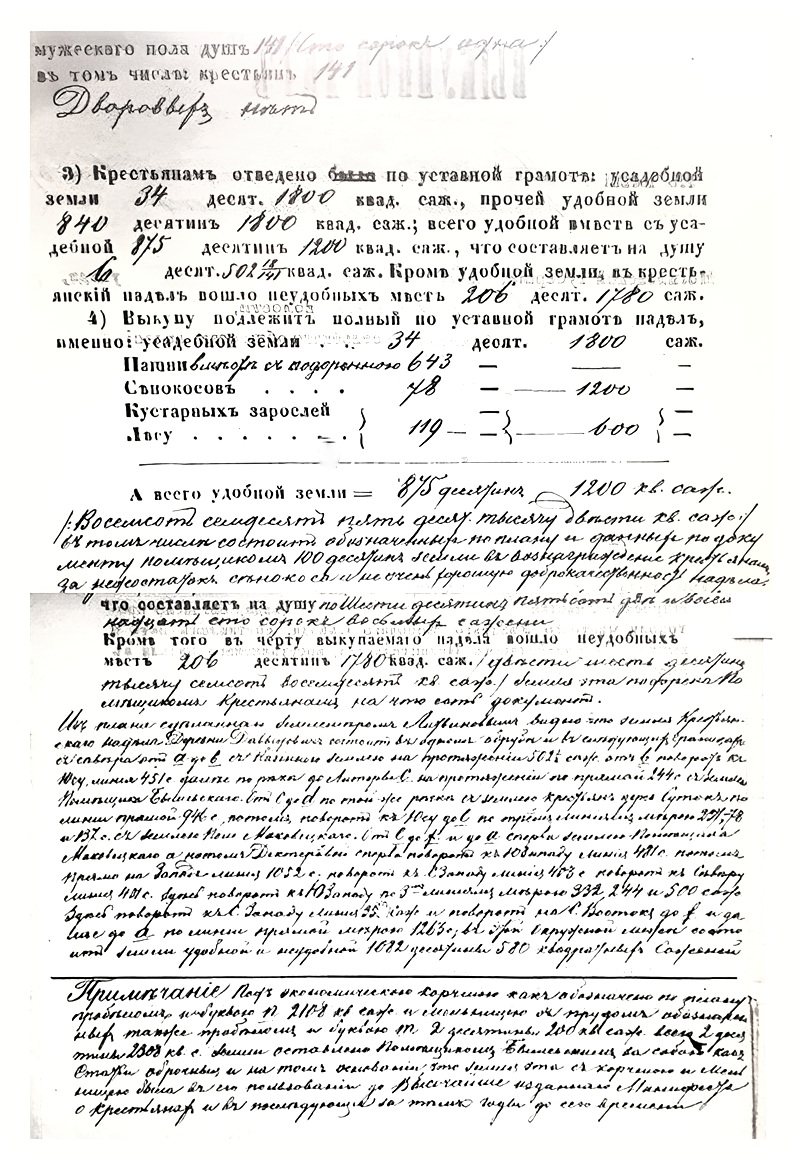 мужескаго пола душъ 141 /сто сорокъ одна/
въ томъ числѣ: крестьянъ 141
Дворовыхъ нѣтъ
3) Крестьянамъ отведено было по уставной грамотѣ: усадебной
земли 34 десят. 1800 квад. саж., прочей удобной земли
840 десятинъ 1800 квад. саж.; всего удобной вмѣстѣ съ уса-
дебной 875 десятинъ 1200 квад. саж., что составляетъ на душу
6 десят. 502 18/141 квад. саж. Кромѣ удобной земли, въ кресть-
янскій надѣлъ вошло неудобныхъ мѣстъ 206 десят. 1780 саж.
4) Выкупу подлежитъ полный по уставной грамотѣ надѣлъ,
именно: усадебной земли . . . 34 десят. 1800 саж.
Пашни вмѣстѣ съ подаренною 643 — — —
Сѣнокосовъ . . . . 78 — — 1200 —
Кустарныхъ зарослей } — { } —
Лѣсу . . . . . . — . } 119 — — { — 600 } —
А всего удобной земли = 875 десятинъ 1200 кв. саж.
/: Восемсотъ семдесятъ пять десят. тысячу двѣсти кв. саж:/
въ томъ числѣ состоитъ обозначенныя по плану и данныя по доку
менту помѣщикомъ 100 десятинъ земли въ вознагражденіе крестьянамъ
за недостатокъ сѣнокоса и не очень хорошую доброкачественность надѣла.
что составляетъ на душу по шести десятинъ пятьсотъ двѣ и восем
надцать сто сорокъ сажени
Кромѣ того въ черту выкупаемаго надѣла вошло неудобныхъ
мѣстъ 206 десятинъ 1780 квад. саж. /двѣсти шесть десятинъ
тысячу семсотъ восемдесятъ кв саж./ земля эта подарена По
мѣщикомъ Крестьянамъ на что есть документъ.
Изъ плана сдѣланнаго Землемѣромъ Литвиновымъ видно что земля Крестьян-
скаго надѣла Деревни состоитъ въ одномъ обрубѣ и въ слѣдующихъ границахъ
съ сѣвера отъ а до b съ Казенною землею на протяженіи 502½ саж. отъ b поворотъ къ
Югу, линія 451 с далѣе по рѣкѣ до Литеры С. на протяженіи по прямой 244 с съ землею
Помѣщика Отъ С до d по той же рѣкѣ съ землею крестьянъ
линіи прямой с, потомъ поворотъ къ Югу до е по тремъ линіямъ мѣрою 231, 78
и 137 с. съ землею Пом Маковецкаго. Отъ е до f и до а сперва землею Помѣщика
Маковецкаго а потомъ сперва поворотъ къ ЮЗападу линія 481 с. потомъ
прямо на Западъ линія 1052 с. поворотъ къ СЗападу линія 453 с поворотъ къ Сѣверу
линія 481 с. здѣсь поворотъ къ ЮЗападу по 3мъ линіямъ мѣрою 332, 244 и 500 саж
здѣсь поворотъ къ С. Западу линія 35 саж и поворотъ на С. Востокъ до f и да
лѣе до а по линіи прямой мѣрою 1263 с; въ этой окружной межѣ состо
итъ земли удобной и неудобной 1082 десятины 580 квадратныхъ Саженей
Примѣчаніе Подъ экономическою корчмою какъ обозначено по плану
пробѣломъ и буквою п 2108 кв саж и мельницею съ прудомъ обозначен
ныхъ также пробѣломъ и буквою т 2 десятины 200 кв саж. всего 2 деся
тины 2308 кв. с. земли оставлено Помѣщикомъ за собою какъ
Статьи оброчныя и на томъ основаніи, что земля эта съ корчмою и мель
ницею была въ его пользованіи до Высочайше изданнаго Манифеста
о крестьянахъ и въ послѣдующіе за тѣмъ годы до сего времени